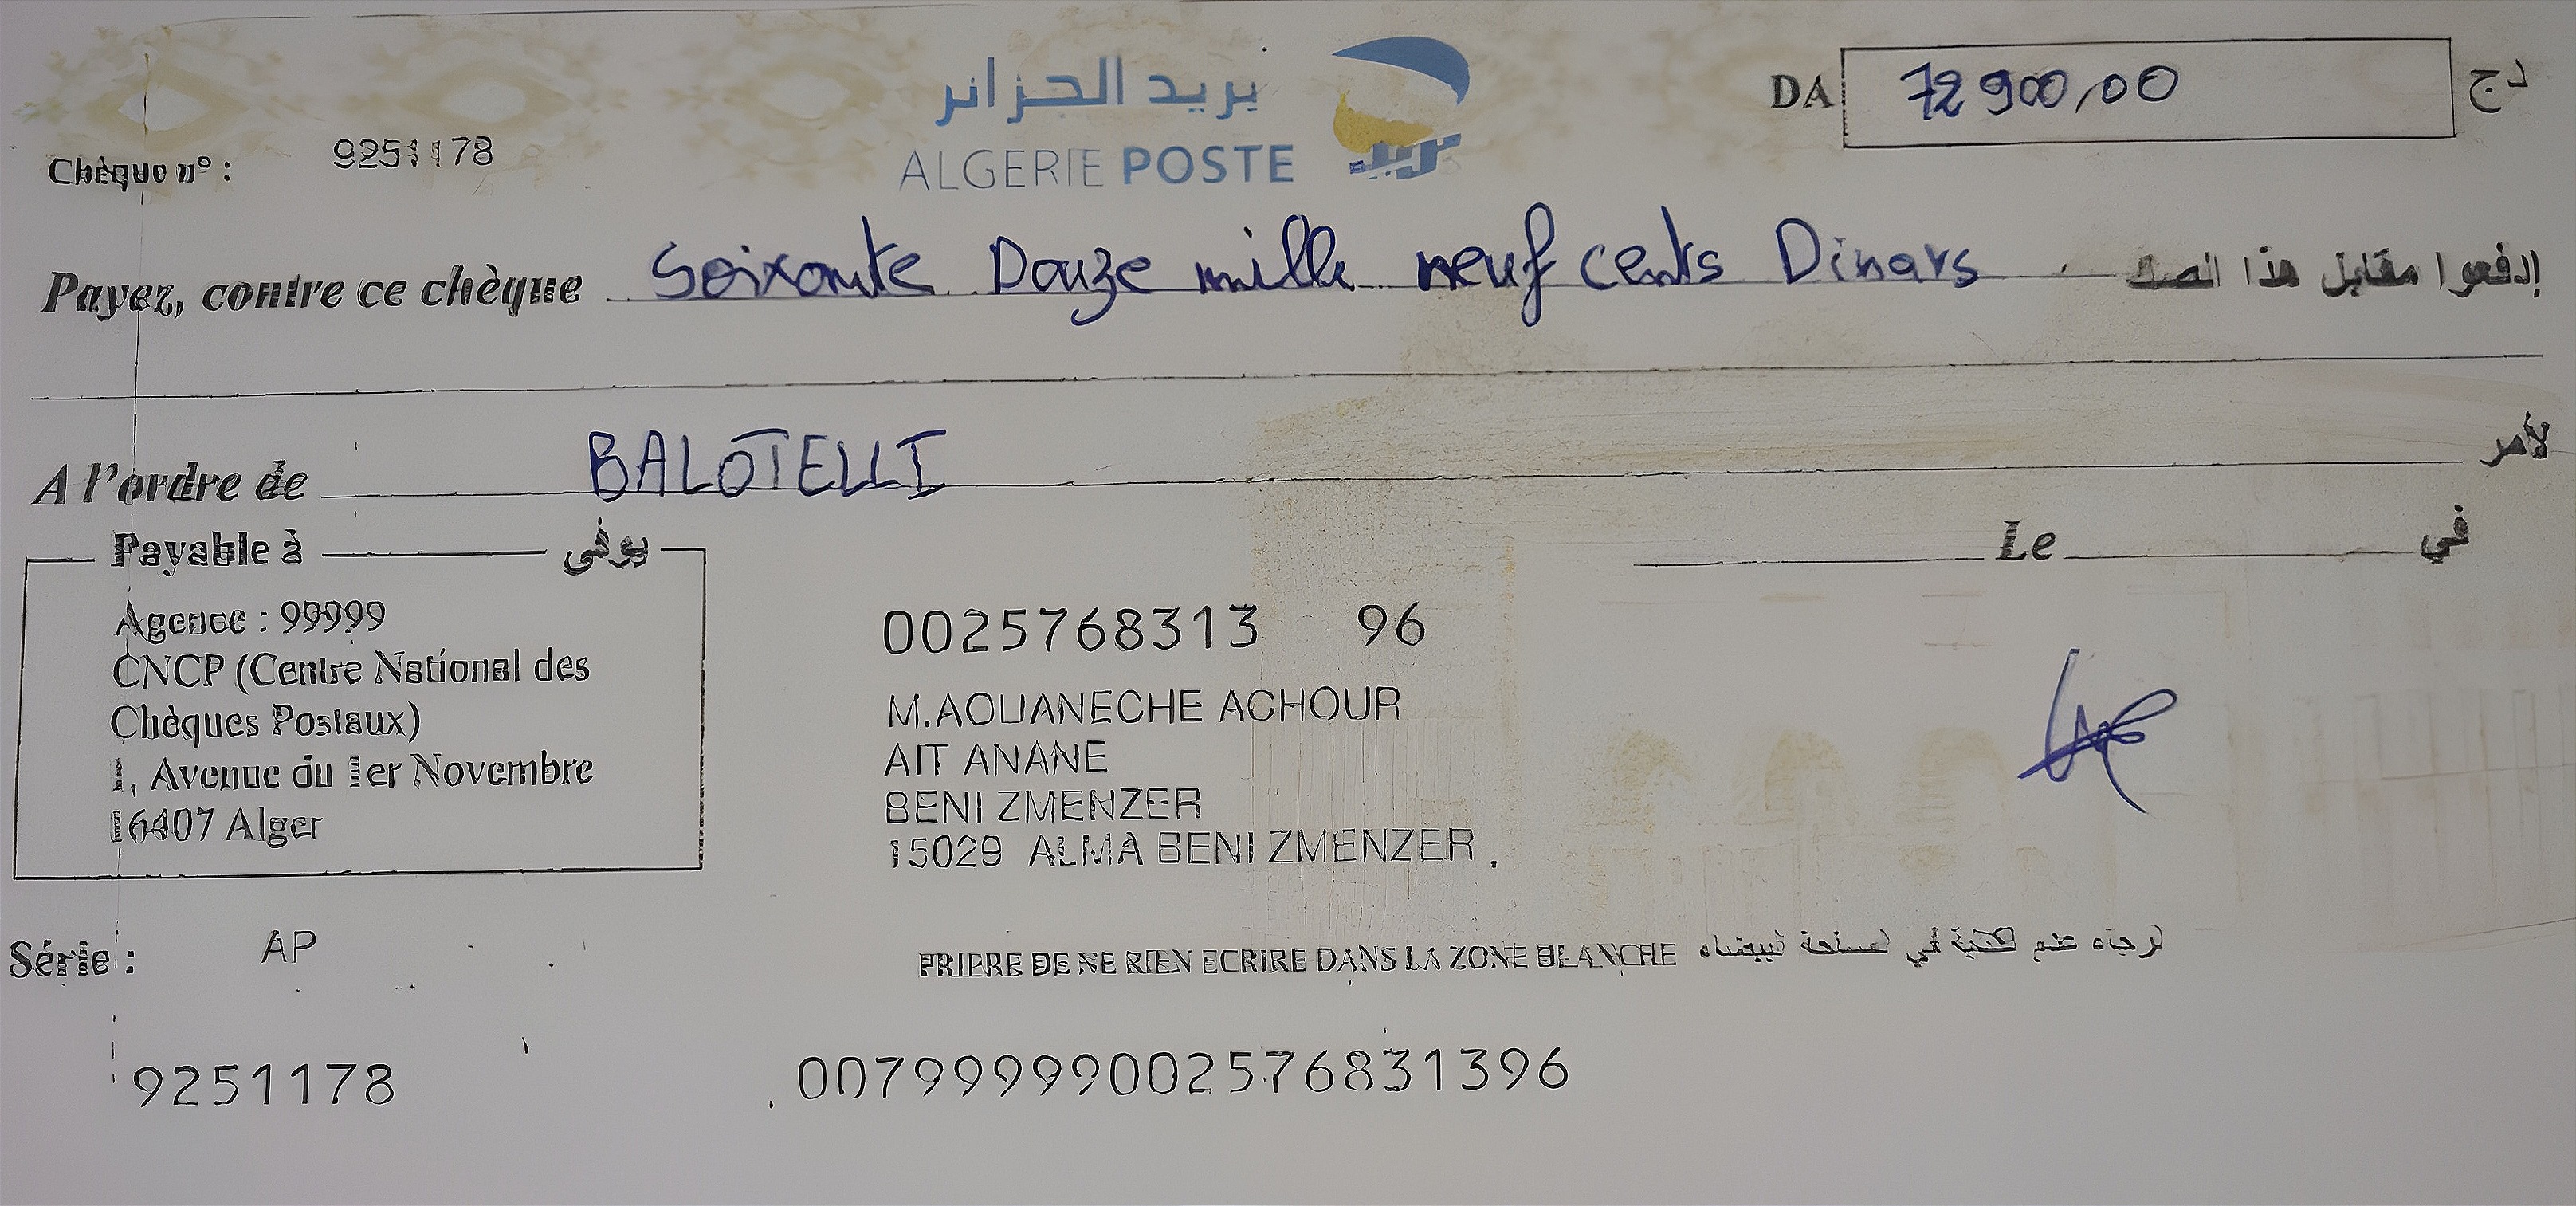 بريد الجزائر
ALGERIE POSTE
DA 72 900,00 دج
Chèque n° : 9251178
Payez, contre ce chèque Soixante Douze mille neuf cents Dinars إدفعوا مقابل هذا الصك
A l'ordre de BALOTELLI لأمر
Payable à يوفى
Le في
Agence : 99999
CNCP (Centre National des
Chèques Postaux)
1, Avenue du 1er Novembre
16407 Alger
0025768313 96
M.AOUANECHE ACHOUR
AIT ANANE
BENI ZMENZER
15029 ALMA BENI ZMENZER .
Série : AP
PRIERE DE NE RIEN ECRIRE DANS LA ZONE BLANCHE
9251178
00799999002576831396